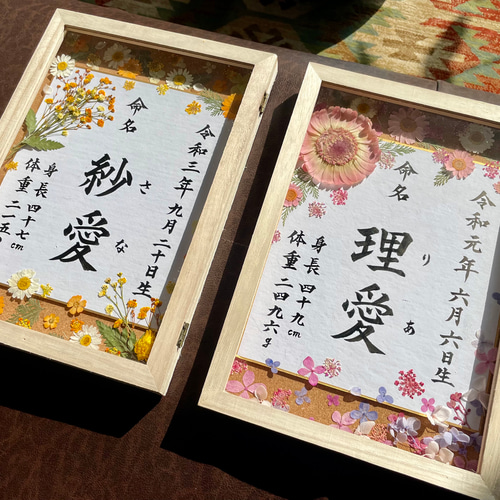 令和三年九月二十日生
命名
紗愛
さな
身長 四十七cm
体重 二一五
令和元年六月六日生
命名
理愛
りあ
身長 四十九cm
体重 二四九六g